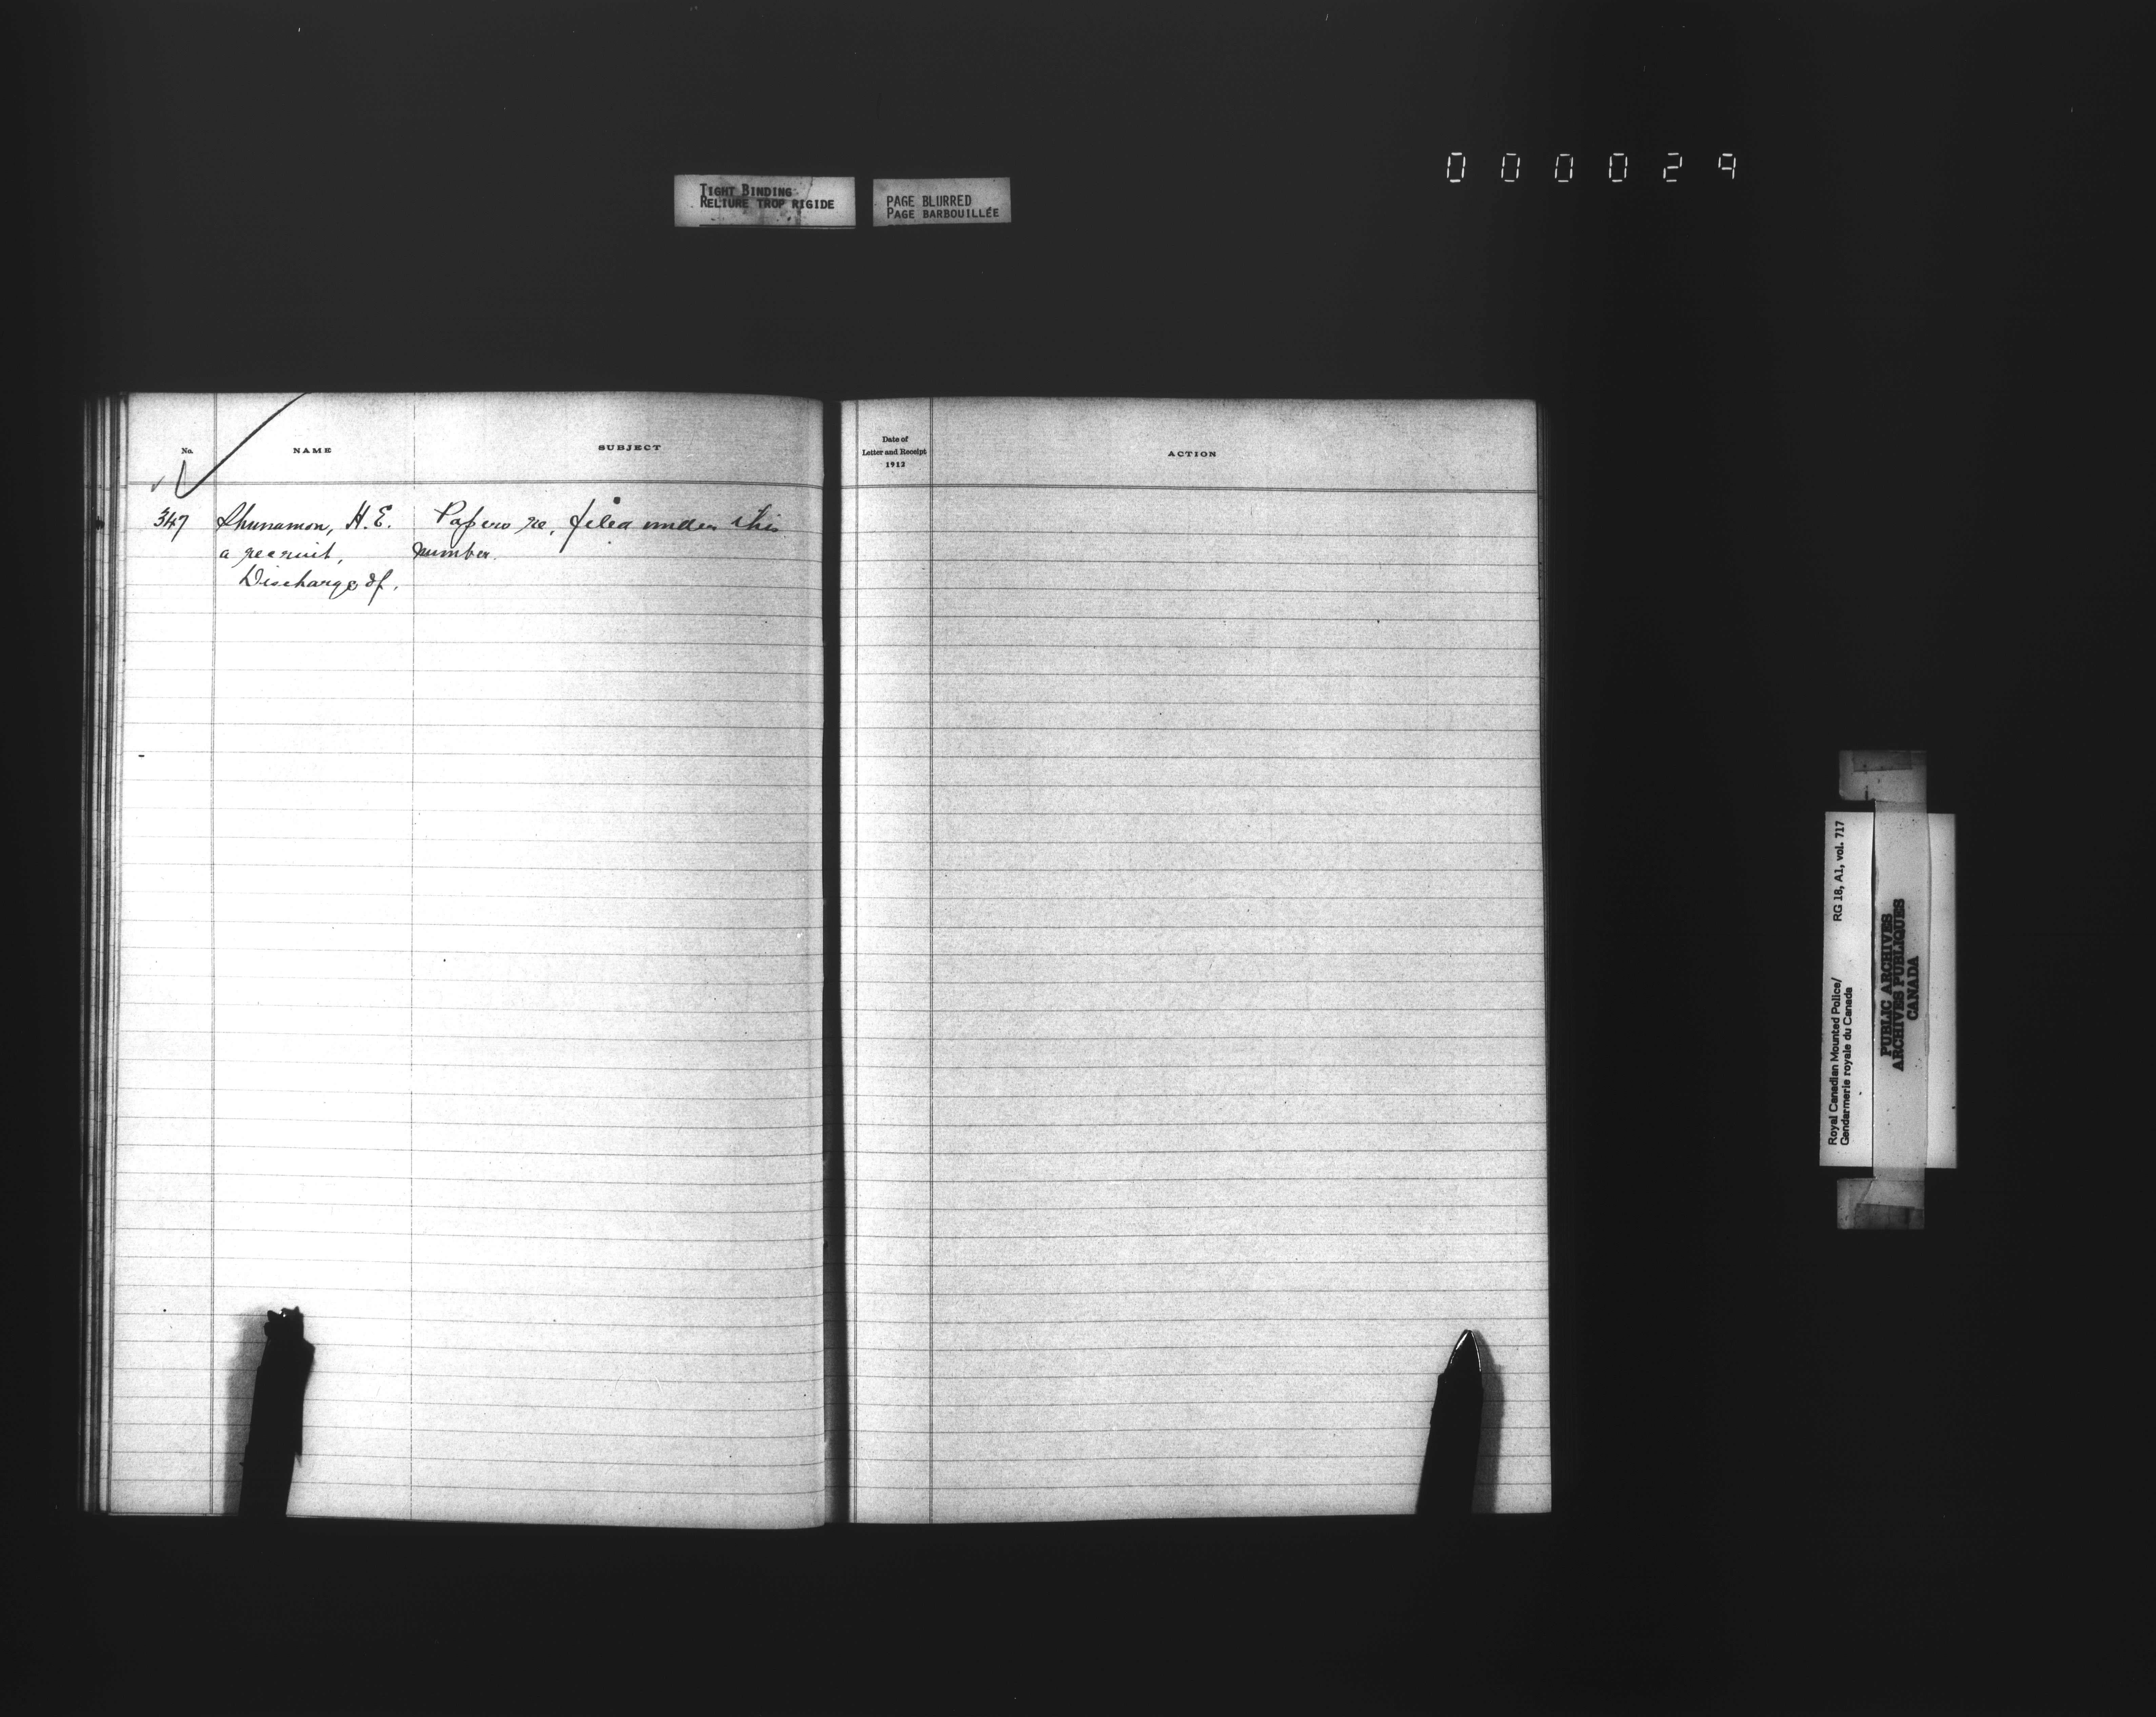 000029
TIGHT BINDING
RELIURE TROP RIGIDE
PAGE BLURRED
PAGE BARBOUILLÉE
No.
NAME
SUBJECT
Date of
Letter and Receipt
1912
ACTION
347 Shunamon, H.E. Papers re, filed under this
a recruit, number.
Discharge of.
Royal Canadian Mounted Police/ RG 18, A1, vol. 717
Gendarmerie royale du Canada
PUBLIC ARCHIVES
ARCHIVES PUBLIQUES
CANADA